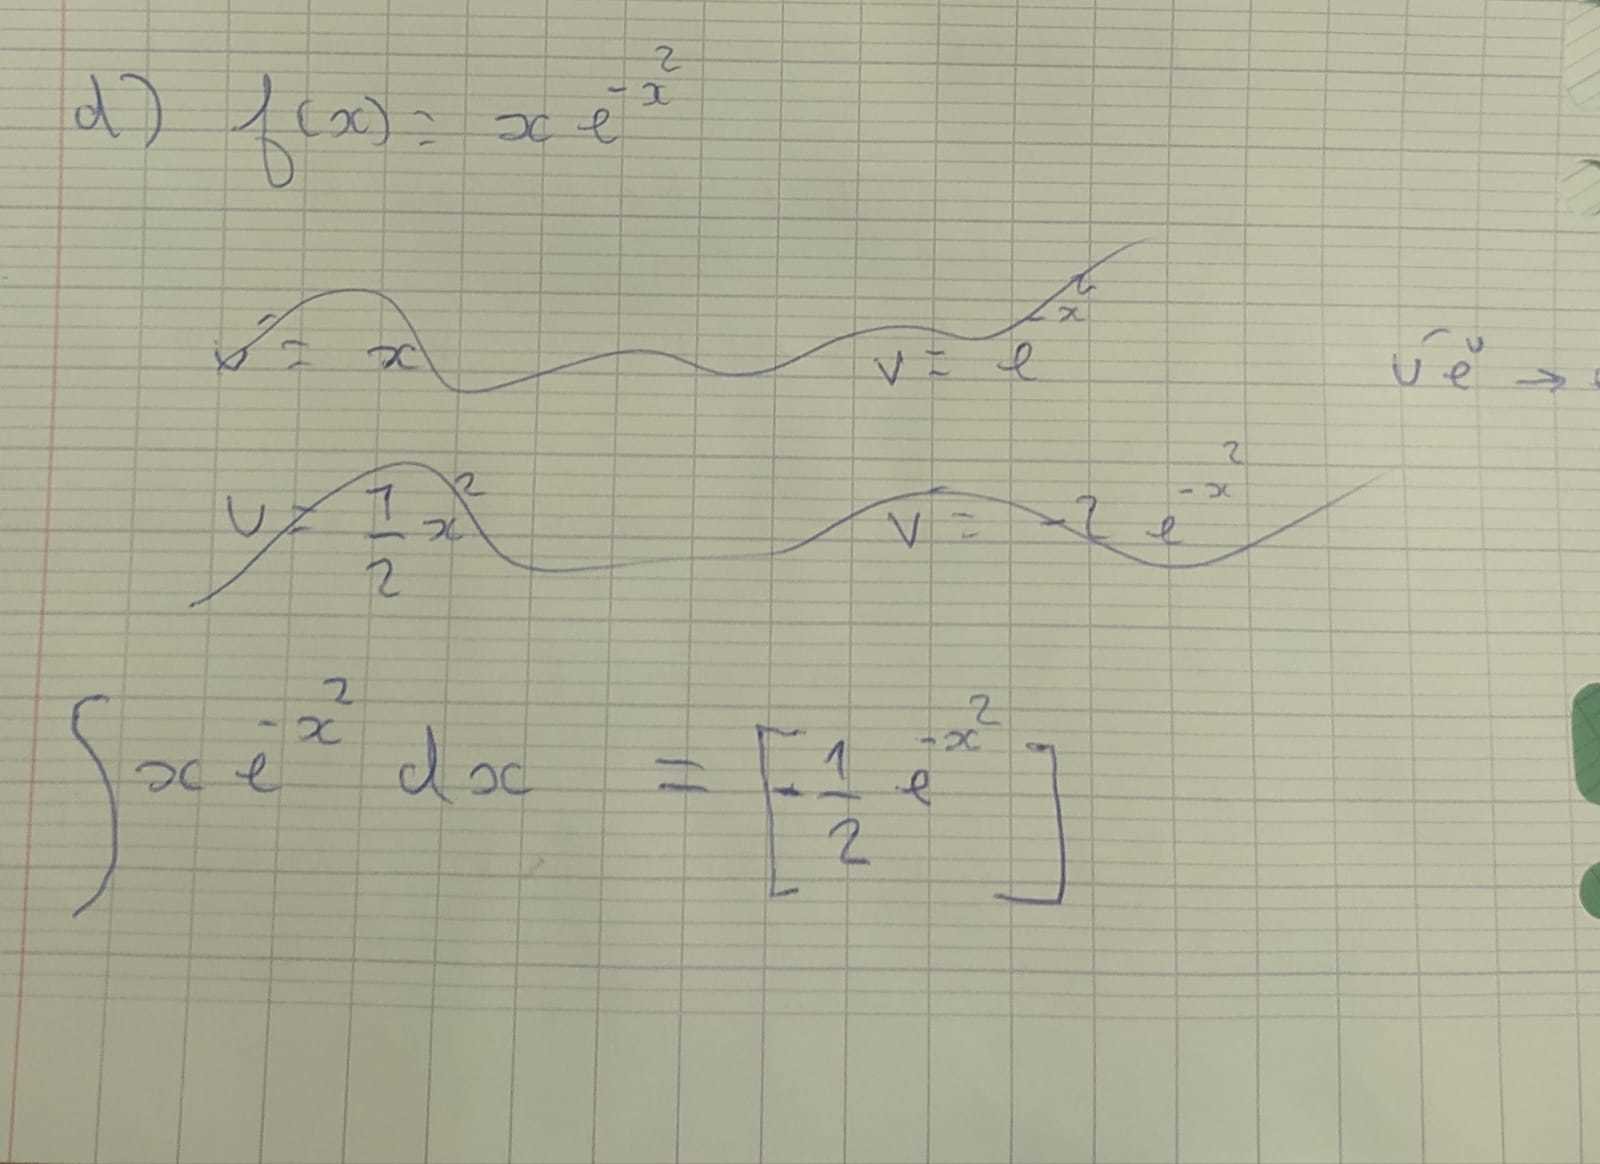 d) f(x) = x e^{-x^2}
u' = x v = e^{-x^2} u' e^u →
u = 1/2 x^2 v = -2 e^{-x^2}
∫ x e^{-x^2} dx = [-1/2 e^{-x^2}]